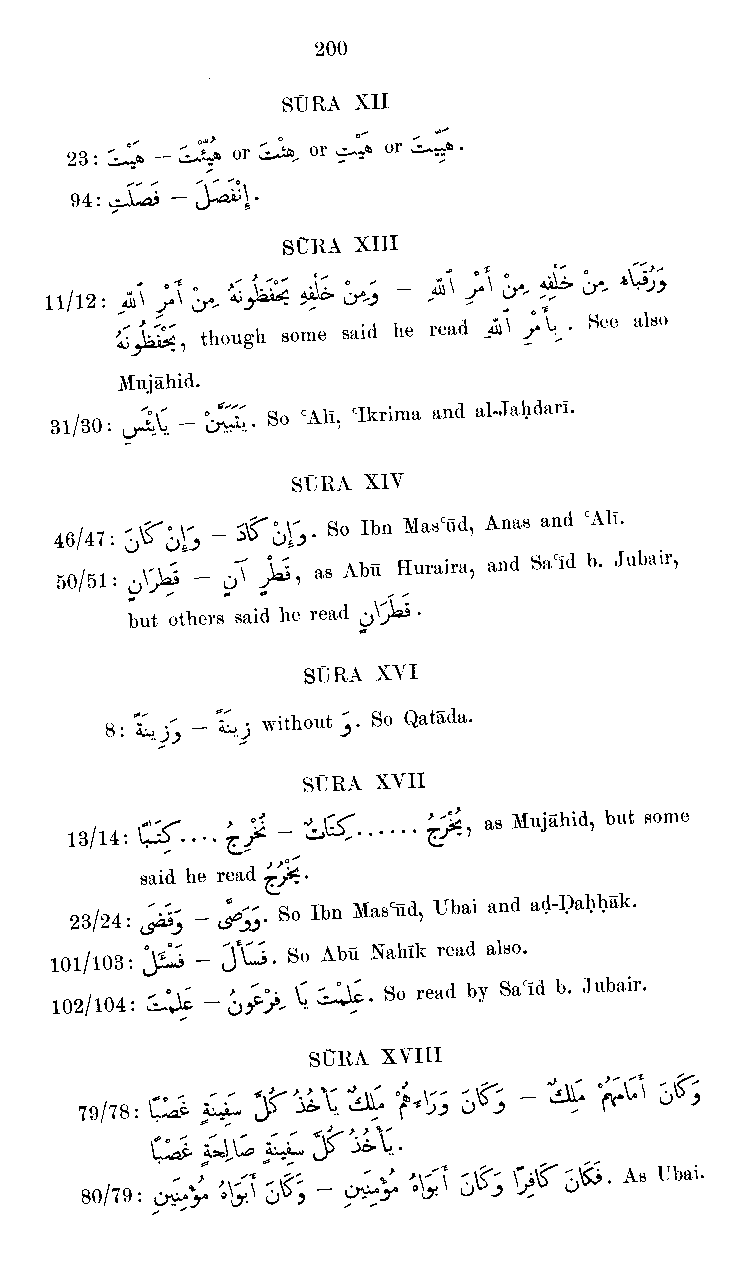 200
SŪRA XII
23: هَيْتَ — هُيِّئْتَ or هِئْتَ or هَيْتِ or هَيَّيْتَ.
94: فَصَلَتِ — إِنْفَصَلَ.
SŪRA XIII
11/12: وَمِنْ خَلْفِهِ يَحْفَظُونَهُ مِنْ أَمْرِ ٱللّٰهِ — وَرُقَبَاءَ مِنْ خَلْفِهِ مِنْ أَمْرِ ٱللّٰهِ
يَحْفَظُونَهُ, though some said he read بِأَمْرِ ٱللّٰهِ. See also
Mujāhid.
31/30: يَايْئَسِ — يَتَبَيَّنْ. So ʿAlī, ʿIkrima and al-Jaḥdarī.
SŪRA XIV
46/47: وَإِنْ كَانَ — وَإِنْ كَادَ. So Ibn Masʿūd, Anas and ʿAlī.
50/51: قَطِرَانٍ — قَطْرٍ آنٍ, as Abū Huraira, and Saʿīd b. Jubair,
but others said he read قَطَرَانٍ.
SŪRA XVI
8: وَزِينَةً — زِينَةً without وَ. So Qatāda.
SŪRA XVII
13/14: نُخْرِجُ .... كِتَٰبًا — يُخْرَجُ ...... كِتَابٌ, as Mujāhid, but some
said he read يَخْرُجُ.
23/24: وَقَضَى — وَوَصَّى. So Ibn Masʿūd, Ubai and aḍ-Ḍaḥḥāk.
101/103: فَسْئَلْ — فَسَأَلَ. So Abū Nahīk read also.
102/104: عَلِمْتَ — عَلِمْتَ يَا فِرْعَوْنُ. So read by Saʿīd b. Jubair.
SŪRA XVIII
79/78: وَكَانَ وَرَاءَهُمْ مَلِكٌ يَأْخُذُ كُلَّ سَفِينَةٍ غَصْبًا — وَكَانَ أَمَامَهُمْ مَلِكٌ
يَأْخُذُ كُلَّ سَفِينَةٍ صَالِحَةٍ غَصْبًا.
80/79: وَكَانَ أَبَوَاهُ مُؤْمِنَيْنِ — فَكَانَ كَافِرًا وَكَانَ أَبَوَاهُ مُؤْمِنَيْنِ. As Ubai.